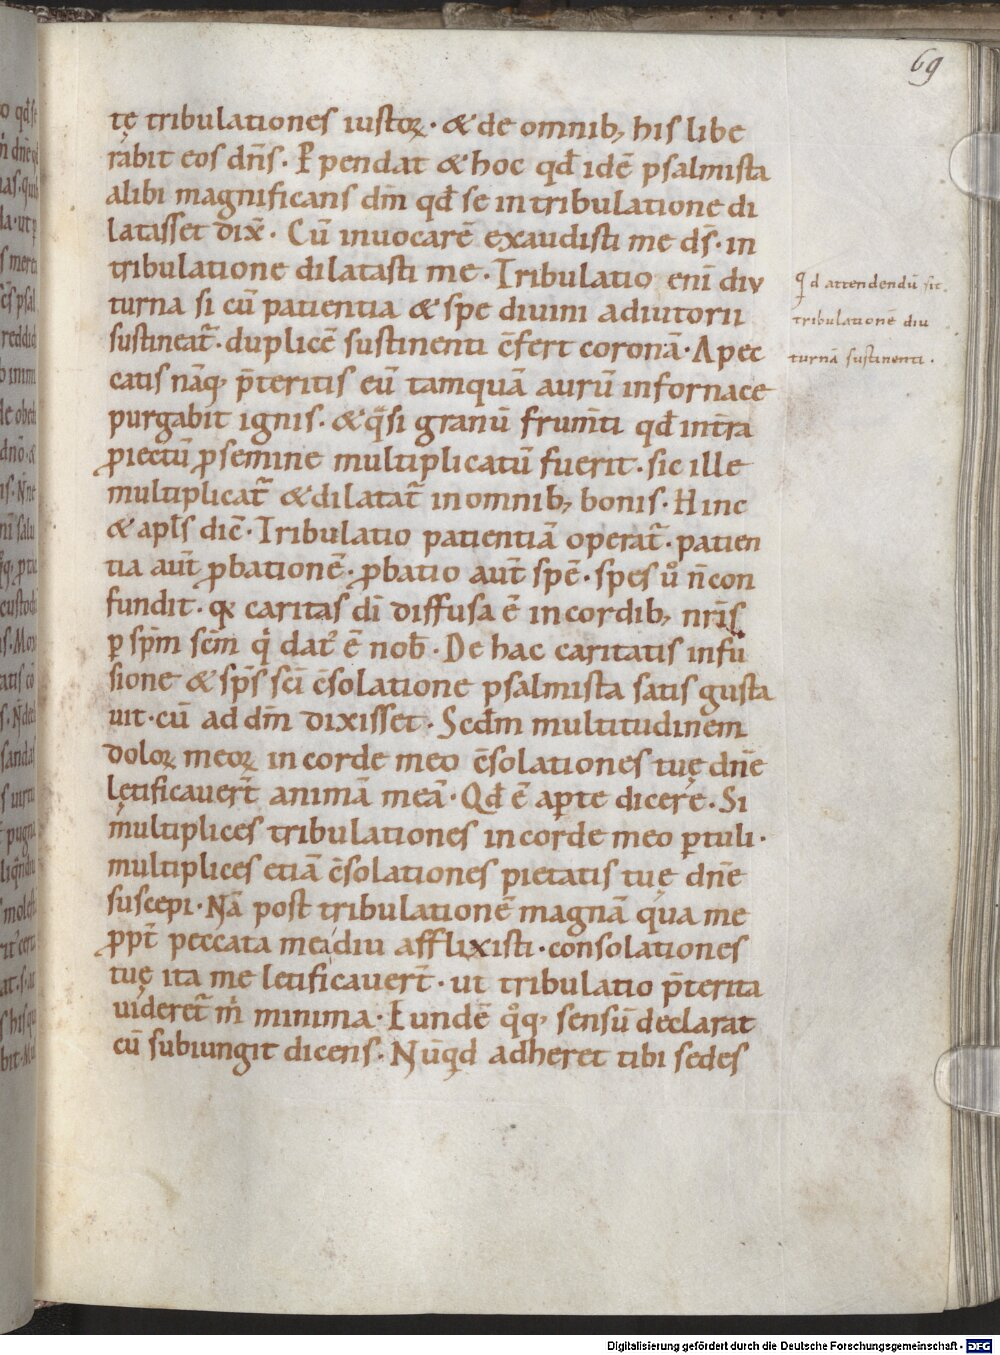 69
tę tribulationes iustoꝝ · & de omnib; his libe
rabit eos dn̄s · Ꝑpendat & hoc qđ idē psalmista
alibi magnificans dm̄ qđ se in tribulatione di
latasset dix̄ · Cū inuocarē exaudisti me ds̄ · in
tribulatione dilatasti me · Tribulatio enī diu
turna si cū patientia & spe diuini adiutorii
sustineat̄ · duplicē sustinenti c̄fert coronā · A pec
catis nāq; p̄teritis eū tamquā aurū in fornace
purgabit ignis · & q̄si granū frum̄ti qđ in t̄ra
ꝓiectū ꝓ semine multiplicatū fuerit · sic ille
multiplicat̄ & dilatat̄ in omnib; bonis · Hinc
& apl̄s dic̄ · Tribulatio patientiā operat̄ · patien
tia aut̄ ꝓbationē · ꝓbatio aut̄ spē · spes uͦ n̄ con
fundit · qꝫ caritas dī diffusa ē in cordib; nr̄is
ꝑ sp̄m scm̄ qͥ datꝰ ē nob̄ · De hac caritatis infu
sione & sp̄s scī c̄solatione psalmista satis gusta
uit · cū ad dm̄ dixisset · Scđm multitudinem
doloꝝ meoꝝ in corde meo c̄solationes tuę dn̄e
lętificauer̄t animā meā · Qđ ē aꝑte dicere · Si
multiplices tribulationes in corde meo ꝑtuli ·
multiplices etiā c̄solationes pietatis tuę dn̄e
suscepi · Nā post tribulationē magnā qua me
ꝓpt̄ peccata mea diu afflixisti · consolationes
tuę ita me letificauer̄t · ut tribulatio p̄terita
uideret̄ mͥ minima · Eundē qͦq; sensū declarat
cū subiungit dicens · Nūqͥd adheret tibi sedes
Qͥd attendendū sit
tribulationē diu
turnā sustinenti ·
Digitalisierung gefördert durch die Deutsche Forschungsgemeinschaft - DFG